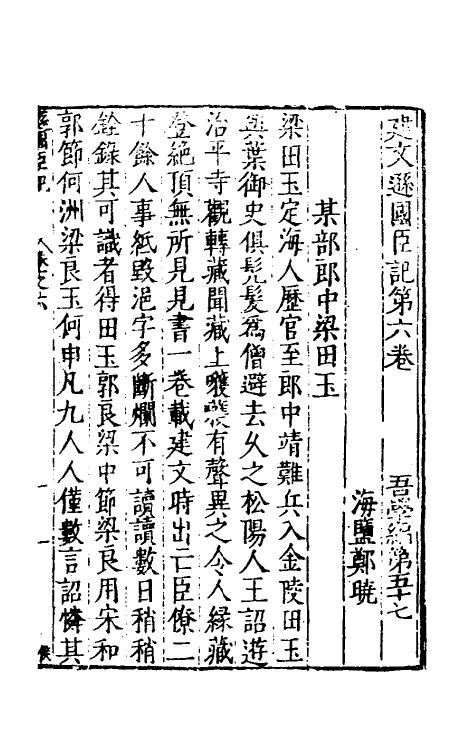 建文遜國臣記第六卷 吾學編第五十七
海鹽鄭曉
某部郎中梁田玉
梁田玉定海人歷官至郎中靖難兵入金陵田玉
與葉御史俱髠髮爲僧避去久之松陽人王詔遊
治平寺觀轉藏聞藏上嚄𠿝有聲異之令人緣藏
登絶頂無所見見書一卷載建文時出亡臣僚二
十餘人事紙毀浥字多斷爛不可讀讀數日稍稍
銓錄其可識者得田玉郭良梁中節梁良用宋和
郭節何洲梁良玉何申凡九人人僅數言詔憐其
遜國臣記 卷之六 一